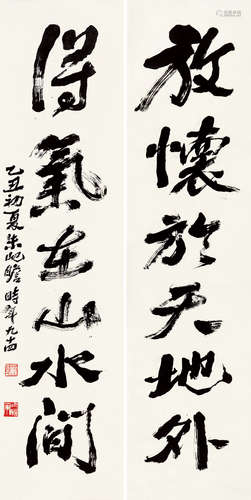 放懷於天地外
得氣在山水間
乙丑初夏朱屺瞻時年九十四